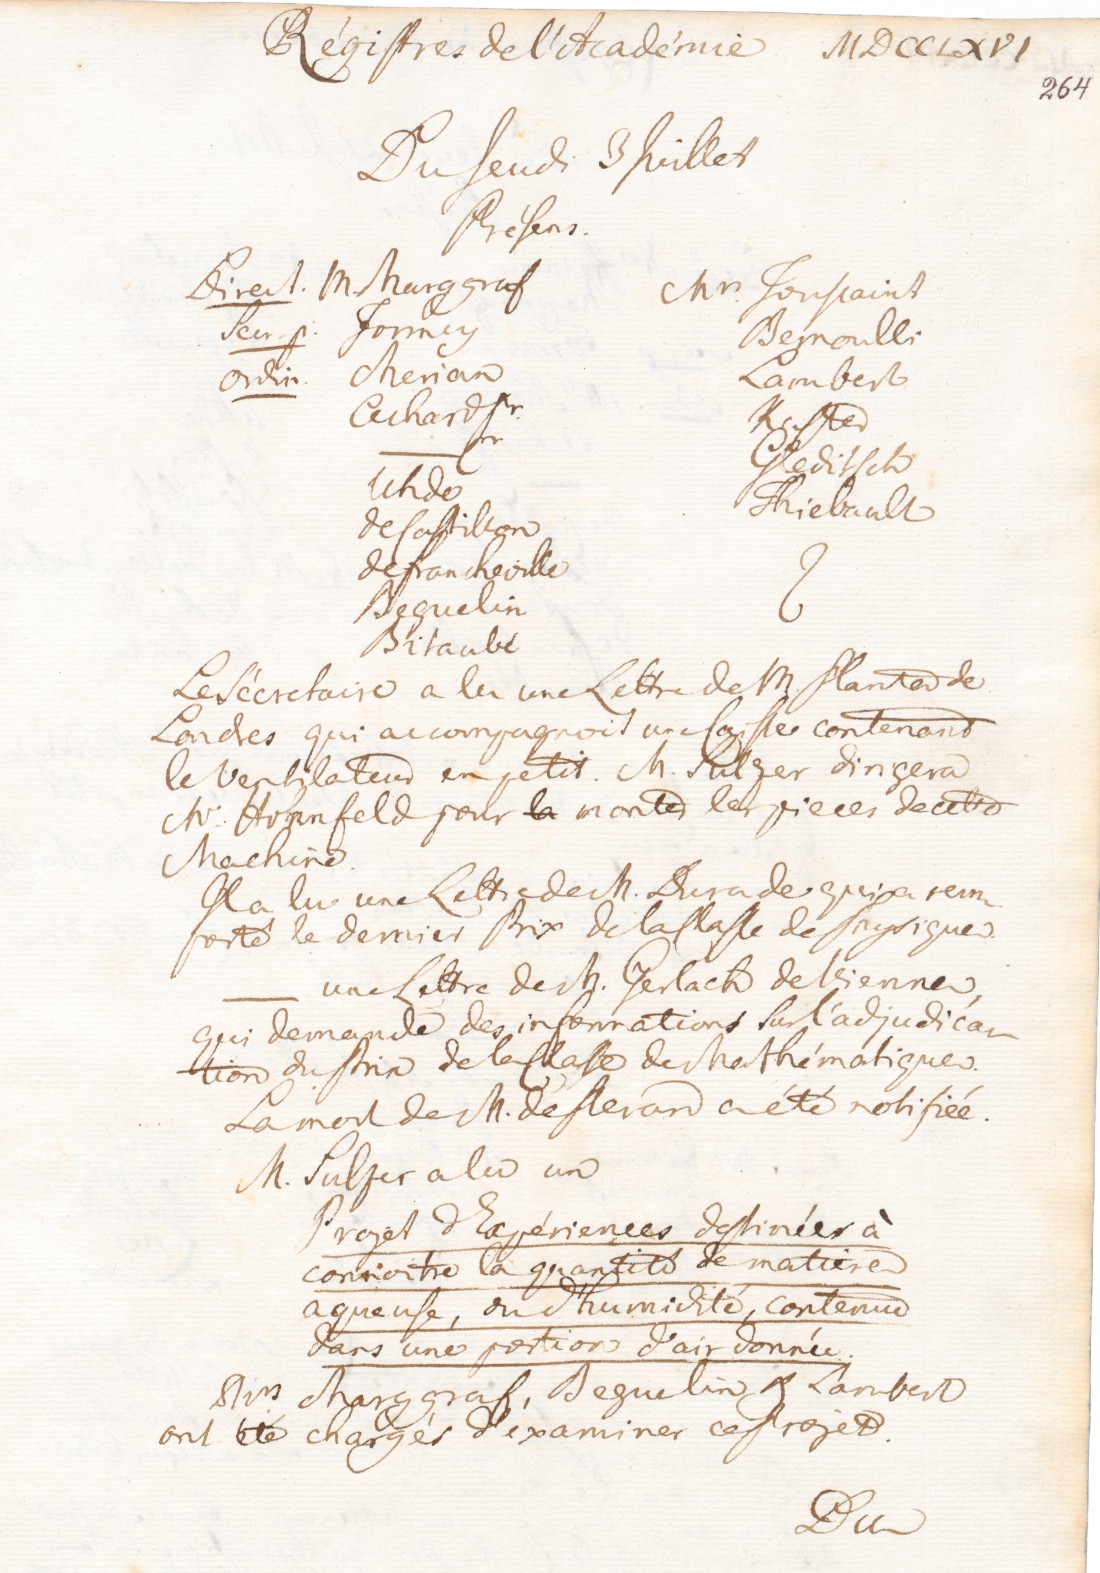 Régistres de l'Académie MDCCLXVI
264
Du Jeudi 3 Juillet
Présens.
Direct. M. Marggraf
Secr. p. Formey
Ordin. Merian
Eckard
Uhde
de Castillon
de Francheville
Beguelin
Bitaubé
Mrs. Toussaint
Bernoulli
Lambert
Küster
Gleditsch
Thiebault
Le Sécretaire a lu une Lettre de M. Planta de
Londres qui accompagnoit une Caisse contenant
le Ventilateur en petit. M. Sulzer dirigera
Mr. Hohnfeld pour la monter les pieces de cette
Machine.
Il a lu une Lettre de M. Durade qui a rem-
porté le dernier Prix de la Classe de Physique.
une Lettre de M. Gerlach de Vienne,
qui demande des informations sur l'adjudica-
tion du Prix de la Classe de Mathématique.
La mort de M. de a été notifiée.
M. Sulzer a lu un
Projet d'Expériences destinées à
connoitre la quantité de matiere
aqueuse, ou d'humidité, contenue
dans une portion d'air donnée.
Mrs Marggraf, Beguelin & Lambert
ont été chargés d'examiner ce Projet.
Du